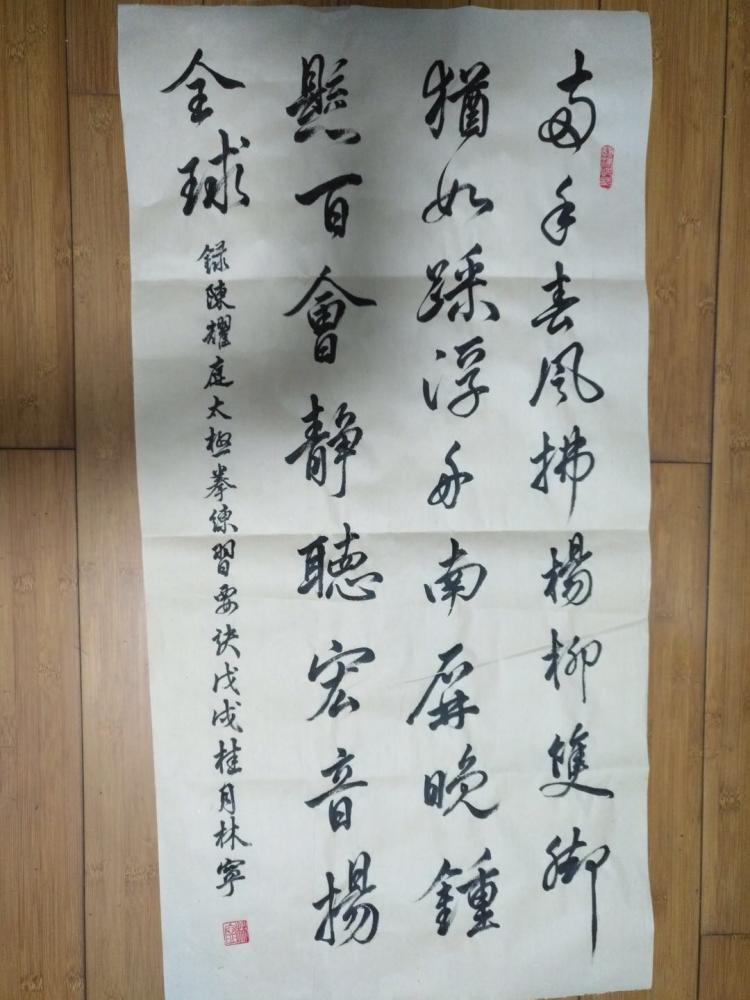 两手春風拂楊柳雙脚
猶如踩浮舟南屏晚鍾
懸百會靜聽宏音揚
全球
録陳耀庭太極拳练習要诀戊戌桂月林寧